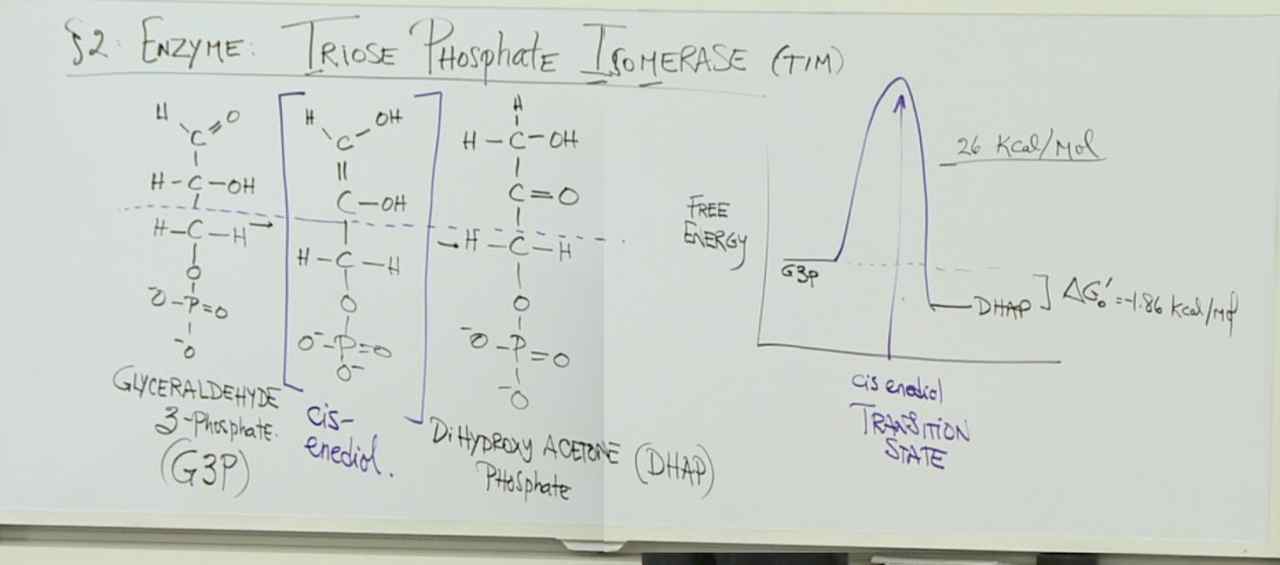 §2: ENZYME: TRIOSE PHosphatE ISOMERASE (TIM)
H O
C
H-C-OH
H-C-H
O
⁻O-P=O
⁻O
GLYCERALDEHYDE
3-Phosphate.
(G3P)
H OH
C
C-OH
H-C-H
O
O⁻-P=O
O⁻
cis-
enediol.
H
H-C-OH
C=O
H-C-H
O
⁻O-P=O
⁻O
DiHYDROXY ACETONE (DHAP)
PHosphate
FREE
ENERGY
26 Kcal/Mol
G3P
DHAP
ΔG₀' = -1.86 Kcal/Mol
cis enediol
TRANSITION
STATE